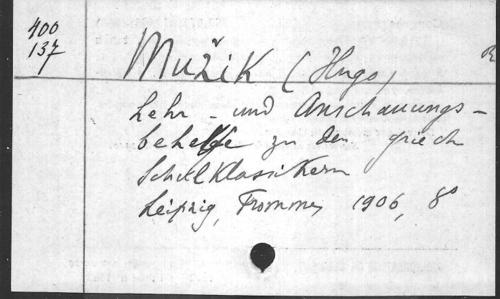 400
137
Mužik (Hugo)
R
Lehr - und Anschauungs-
behelfe zu den griech
Schulklassikern
Leipzig, Fromme, 1906, 8°